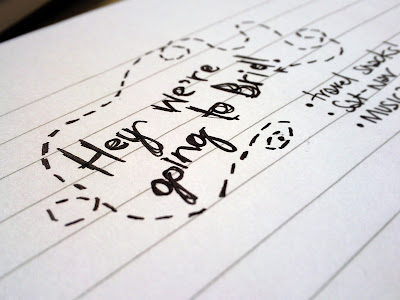 Hey we're
going to Brid!
• Travel snacks
• Sat Nav
• Music